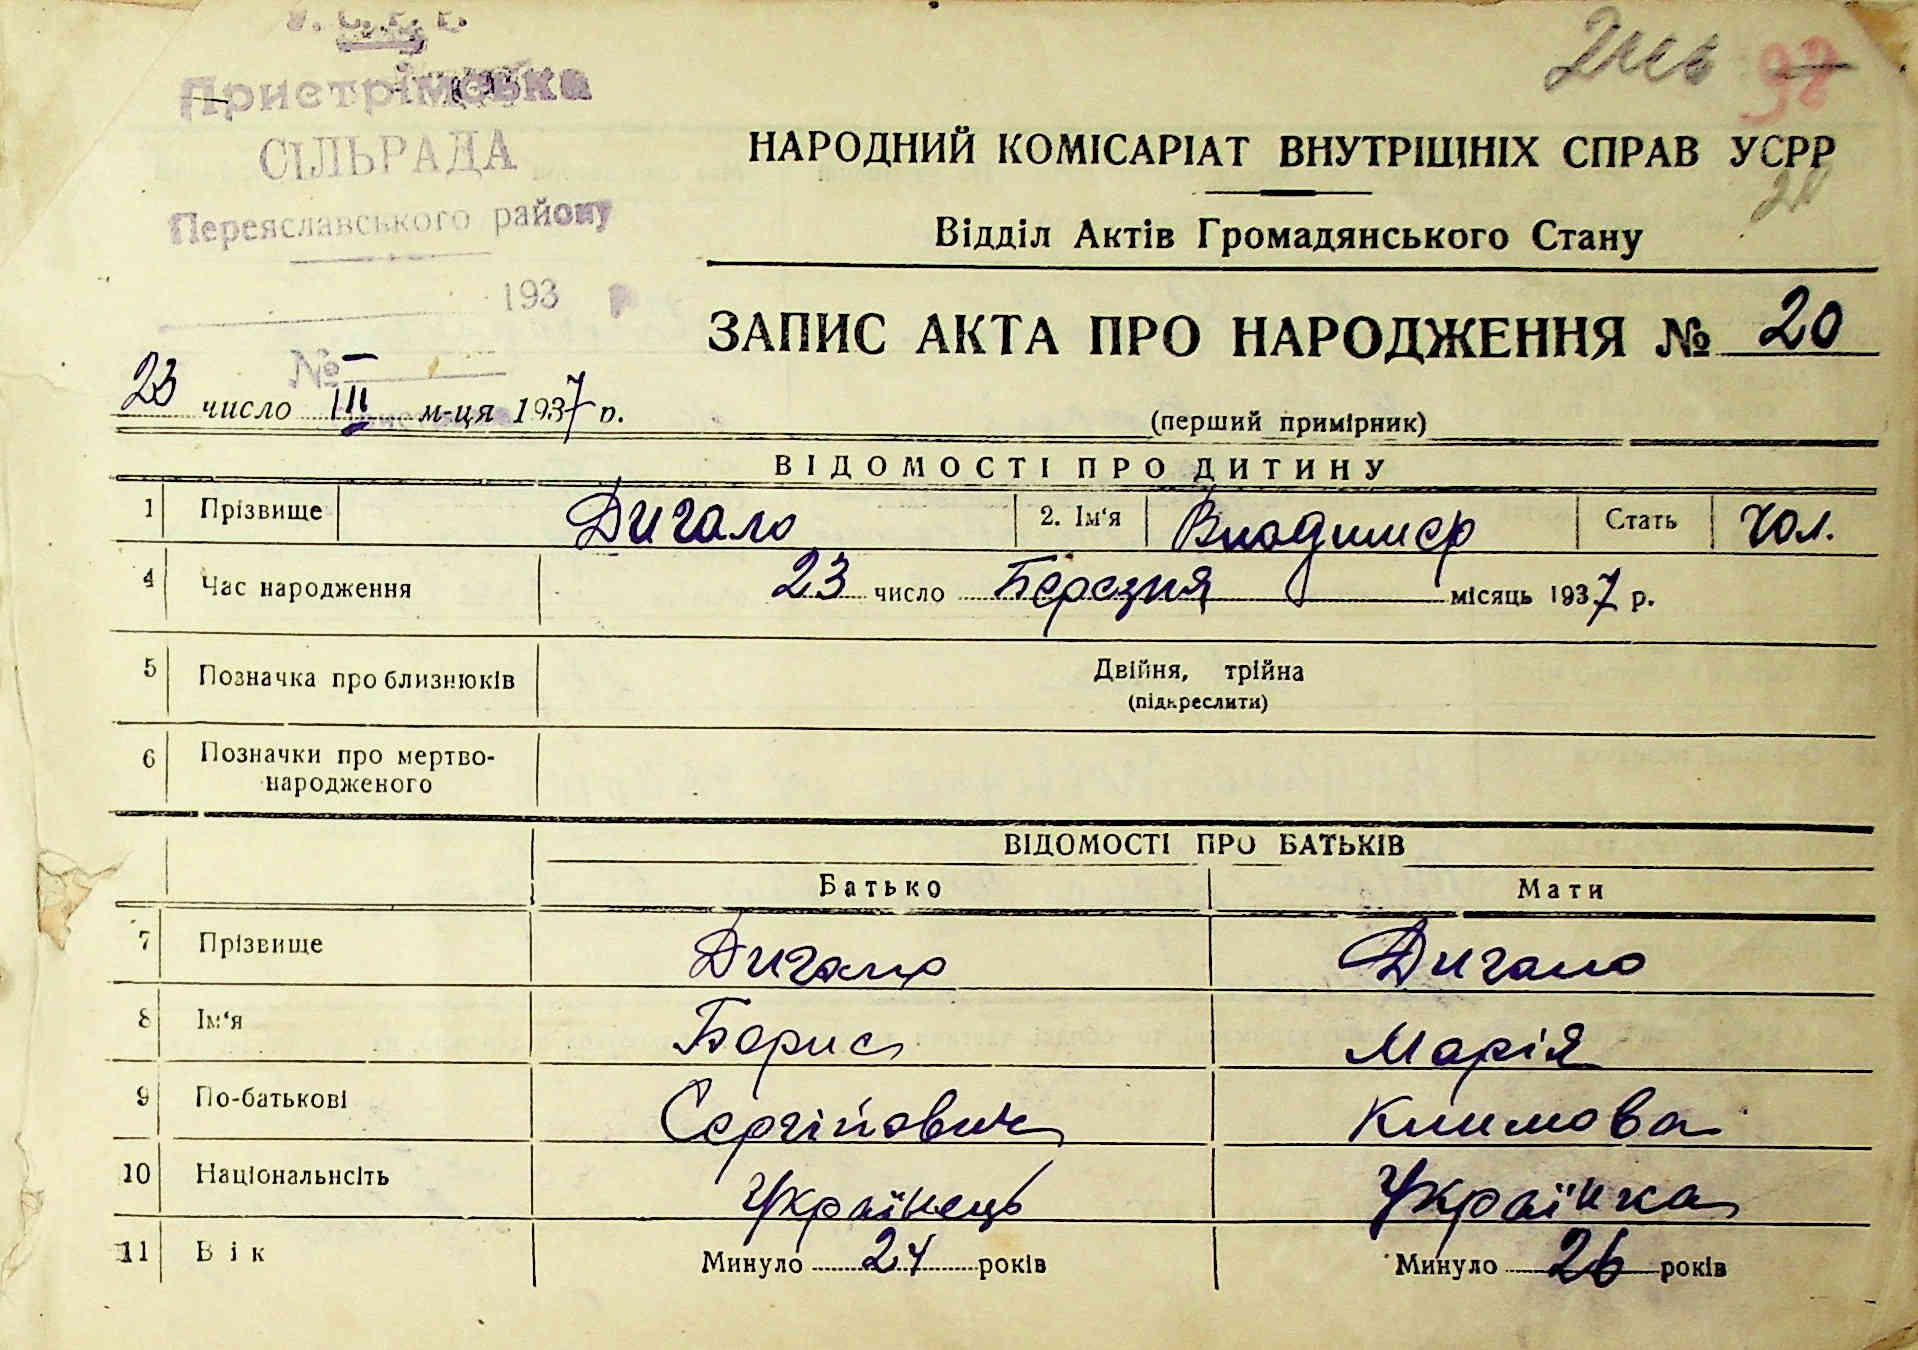 У.С.Р.Р.
Пристрімська
СІЛЬРАДА
Переяславського району
193 р
№ —
98
20
НАРОДНИЙ КОМІСАРІАТ ВНУТРІШНІХ СПРАВ УСРР
Відділ Актів Громадянського Стану
ЗАПИС АКТА ПРО НАРОДЖЕННЯ № 20
23 число III м-ця 1937 р.
(перший примірник)
ВІДОМОСТІ ПРО ДИТИНУ
1 Прізвище Дигало 2. Ім'я Владимер Стать Чол.
4 Час народження 23 число Березня місяць 1937 р.
5 Позначка про близнюків Двійня, трійна
(підкреслити)
6 Позначки про мертво-
народженого
ВІДОМОСТІ ПРО БАТЬКІВ
Батько Мати
7 Прізвище Дигало Дигало
8 Ім'я Борис Марія
9 По-батькові Сергійович Климова
10 Національнсіть Українець Українка
11 Вік Минуло 24 років Минуло 26 років